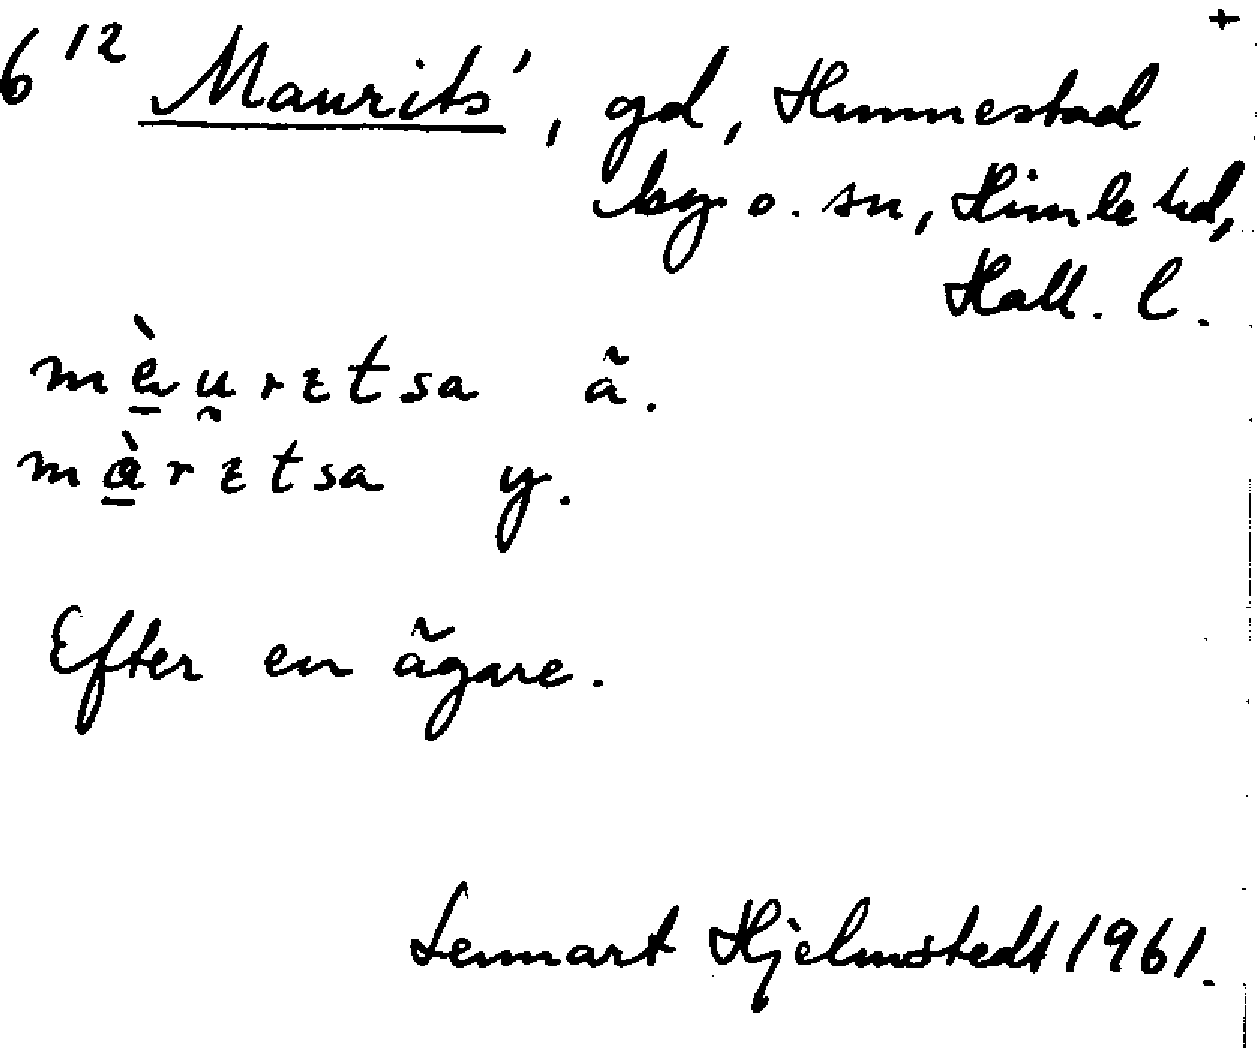 6 12 Maurits', gd, Hunnestad
by o. sn, Himle hd,
Hall. l.
mà̱u̯rɩtsa ä.
mà̱rɩtsa y.
Efter en ägare.
Lennart Hjelmstedt 1961.